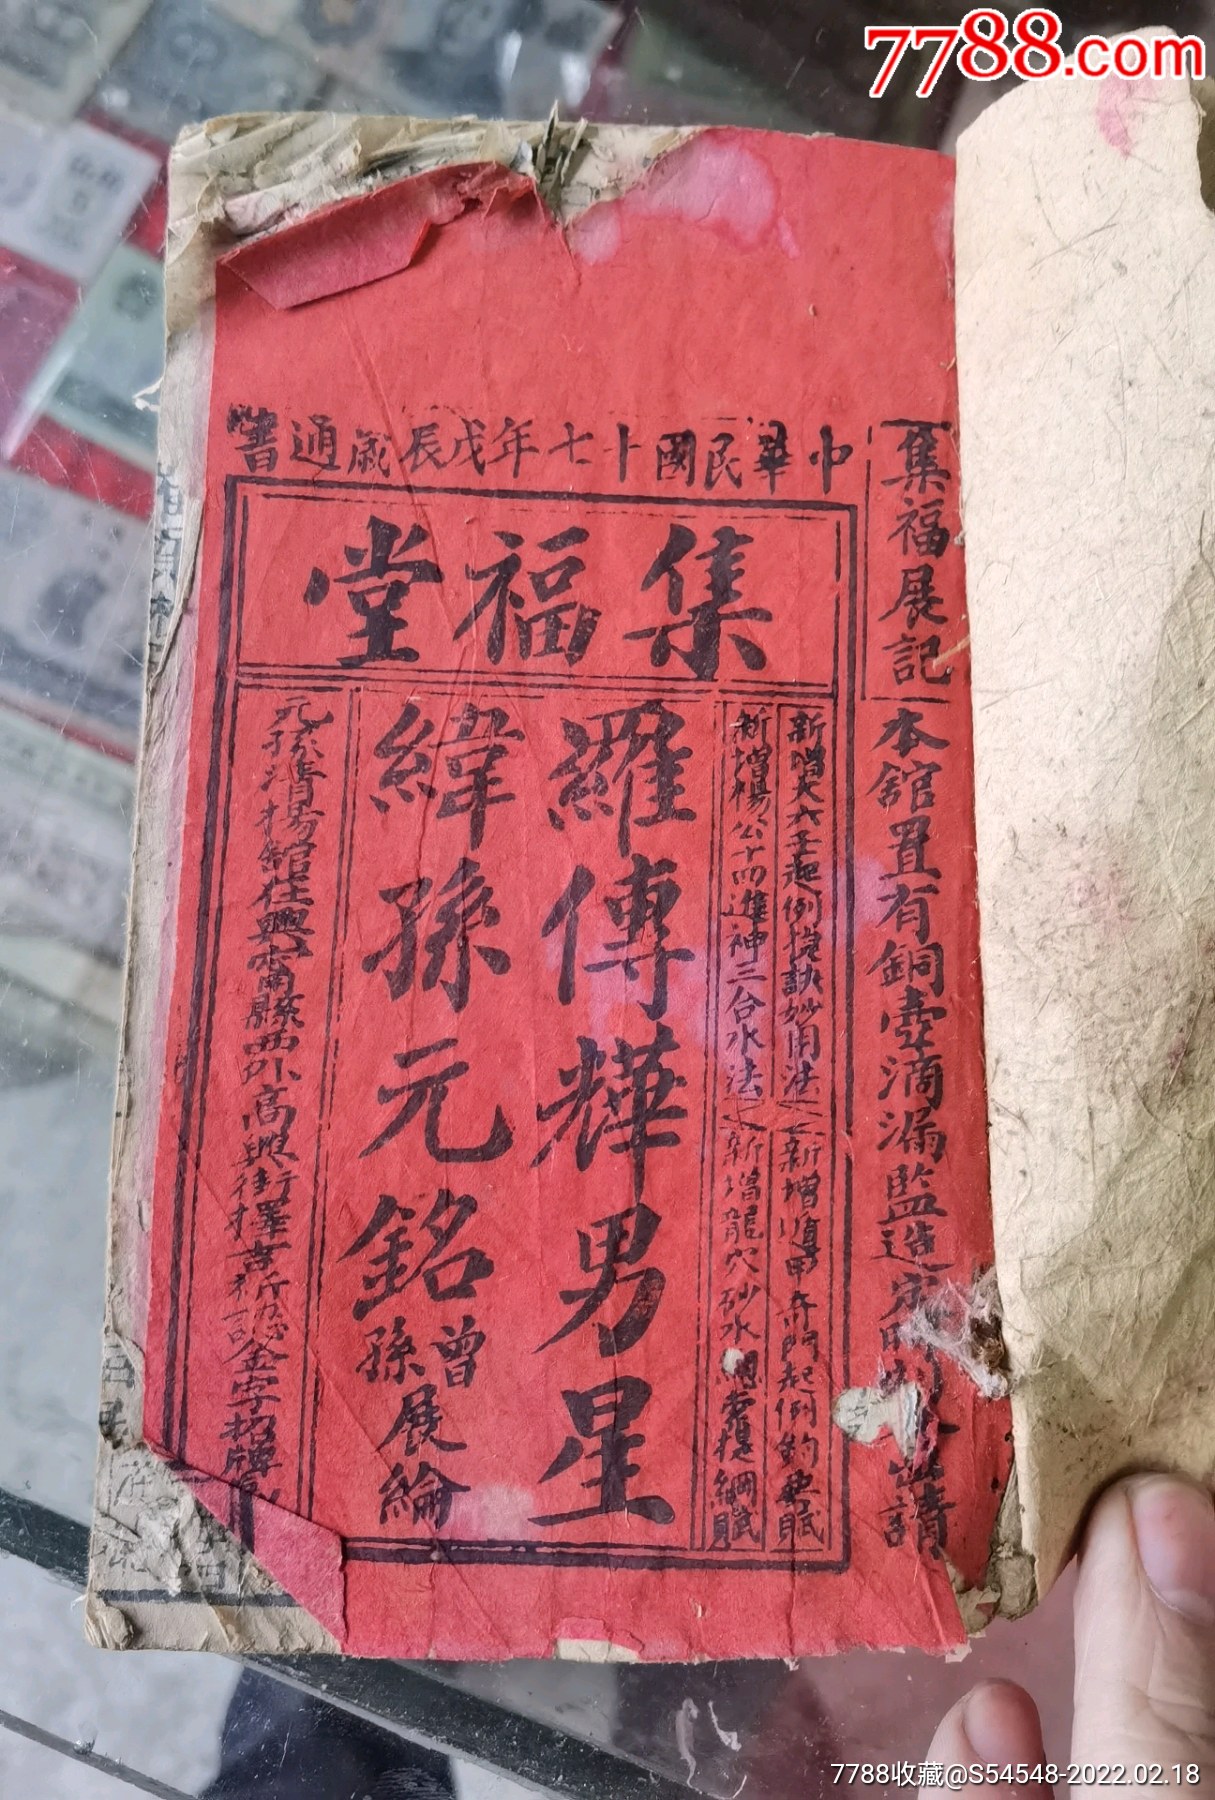 7788.com
中華民國十七年戊辰歲通書
集福堂
集福展記
本舘置有銅壺滴漏監造
請
新增大六壬起例捷訣妙用法
新增遁甲奇門起例鈞要賦
新增楊公十四進神三合水法
新增龍穴砂水思索提綱賦
羅傳燁男星
緯孫元銘
曾孫展綸
元孫清揚舘在興甯縣西外高興街擇吉祈認金字招牌
7788收藏@S54548-2022.02.18